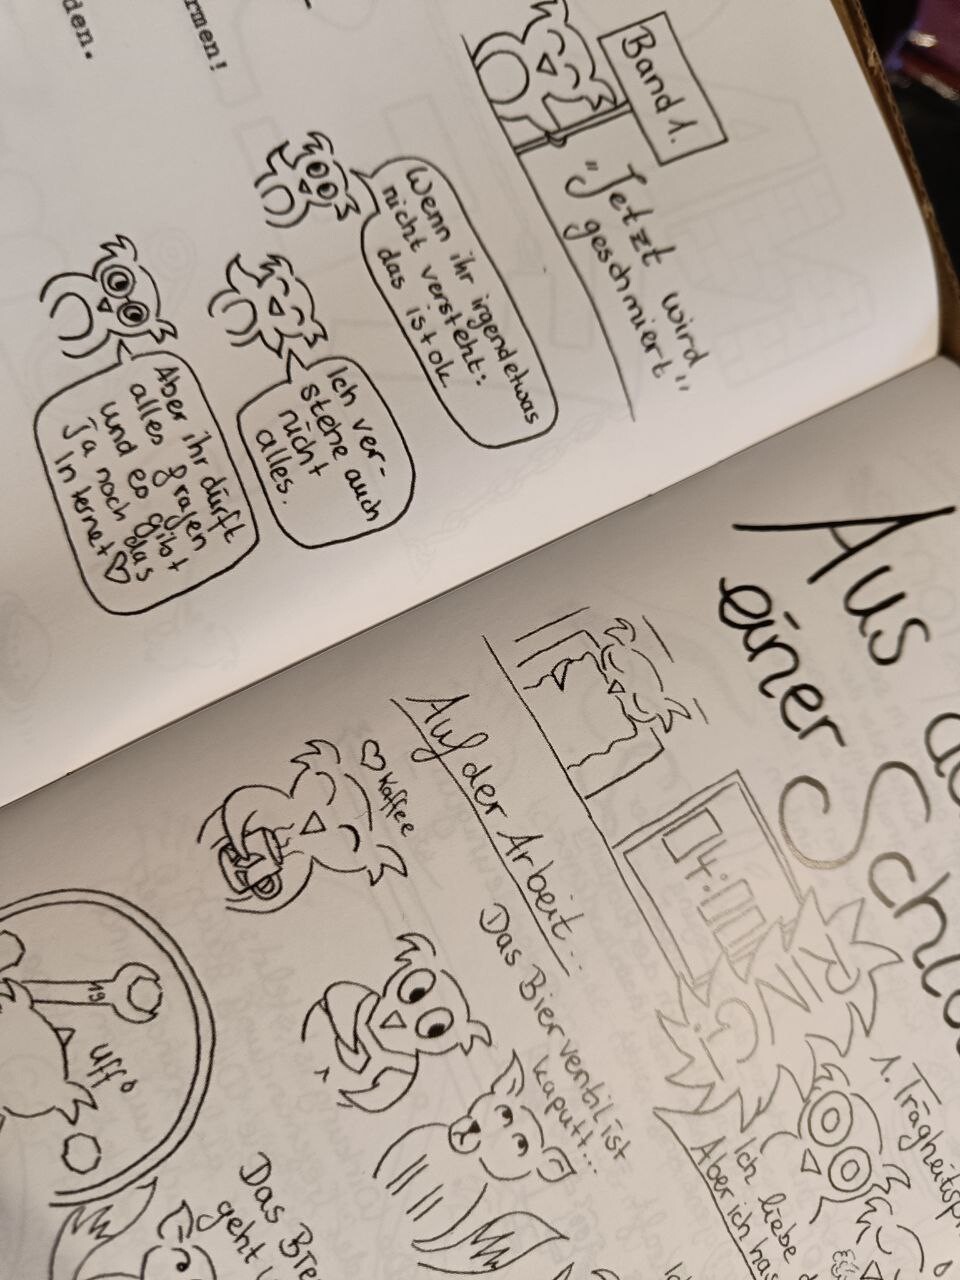 rmen!
den.
Band 1.
"Jetzt wird
geschmiert"
Wenn ihr irgendetwas
nicht versteht:
das ist ok.
Ich ver-
stehe auch
nicht
alles.
Aber ihr dürft
alles fragen
und es gibt
ja noch das
Internet♡
Aus
einer
04:00
1.
Ich liebe
Aber ich has
Auf der Arbeit...
♡ Kaffee
Das Bierventil ist
kaputt...
19
uff
Das Bie
geht